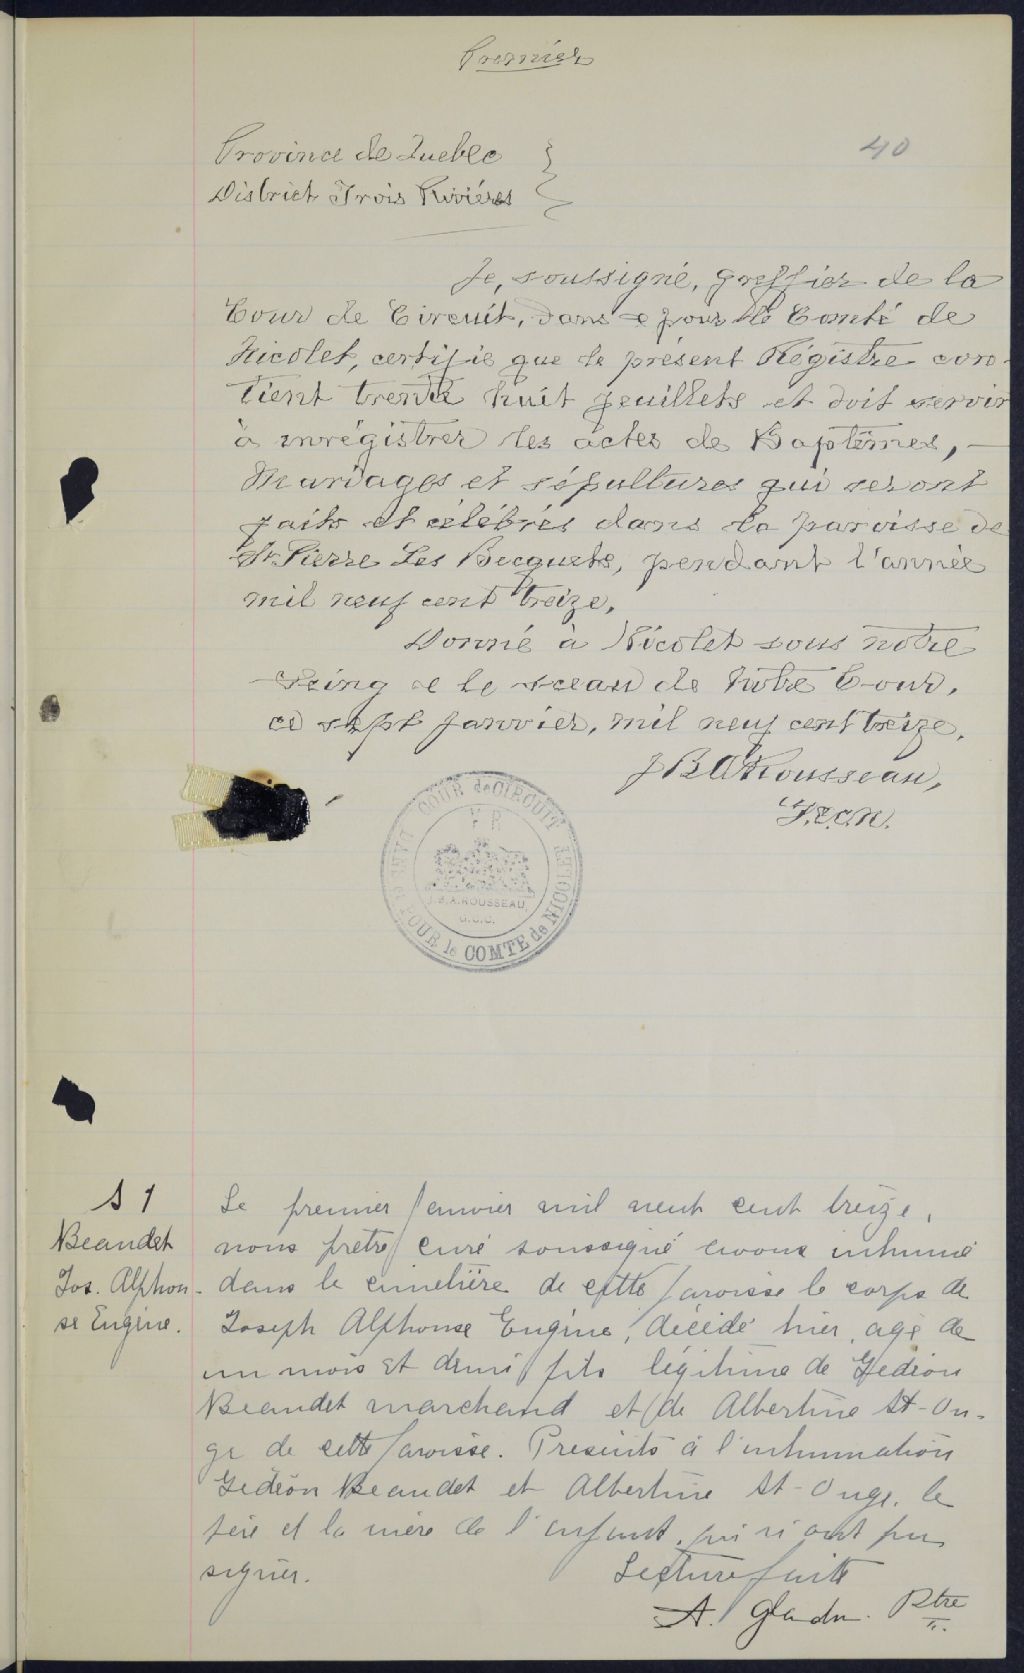 Premier
40
Province de Quebec
District Trois Rivières
Je, soussigné, greffier de la
Cour de Circuit, dans e pour le Comté de
Nicolet, certifie que le présent Régistre con-
tient trente huit feuillets et doit servir
à enrégistrer les actes de Baptêmes,
Mariages et sépultures qui seront
faits et célébrés dans la paroisse de
St. Pierre Les Becquets, pendant l'année
mil neuf cent treize.
Donné à Nicolet sous notre
seing e le sceau de Notre Cour,
ce sept Janvier, mil neuf cent treize.
J B A Rousseau,
COUR de CIRCUIT
DANS e POUR le COMTE de NICOLET
J.B.A. ROUSSEAU,
G.C.C.
S 1
Beaudet
Jos. Alphon-
se Eugène.
Le premier Janvier mil neuf cent treize,
nous prêtre curé soussigné avons inhumé
dans le cimetière de cette paroisse le corps de
Joseph Alphonse Eugène, décédé hier, age de
un mois et demi fils légitime de Gedéon
Beaudet marchand et de Albertine St-On-
ge de cette paroisse. Presents à l'inhumation
Gédéon Beaudet et Albertine St-Onge, le
père et la mère de l'enfant, qui n'ont pu
signer.
Lecture faite
A. Gladu. Ptre